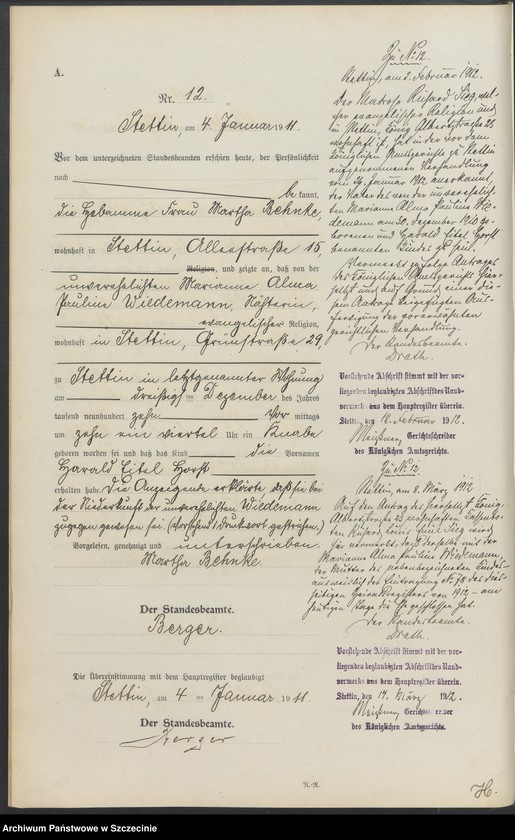 A.
Nr. 12.
Stettin, am 4 Januar 1911.
Vor dem unterzeichneten Standesbeamten erschien heute, der Persönlichkeit
nach
be kannt,
die Hebamme Frau Martha Behnke,
wohnhaft in Stettin, Alleestraße 15,
Religion, und zeigte an, daß von der
unverehelichten Marianne Alma
Pauline Wiedemann, Nähterin,
evangelischer Religion,
wohnhaft in Stettin, Grünstraße 29,
zu Stettin in letztgenannter Wohnung
am dreißigsten Dezember des Jahres
tausend neunhundert zehn Vor mittags
um zehn ein viertel Uhr ein Knabe
geboren worden sei und daß das Kind die Vornamen
Harald Eitel Horst
erhalten habe. Die Anzeigende erklärte daß sie bei
der Niederkunft der unverehelichten Wiedemann
zugegen gewesen sei. (Vorstehend 1 Druckwort gestrichen.)
Vorgelesen, genehmigt und unterschrieben.
Martha Behnke.
Der Standesbeamte.
Berger.
Die Übereinstimmung mit dem Hauptregister beglaubigt
Stettin, am 4 ten Januar 1911.
Der Standesbeamte.
Berger
Zu No 12.
Stettin, am 2. Februar 1912.
Der Matrose Richard Sieg, evangelischer Religion und
in Stettin, König Albertstraße 23
wohnhaft ist, hat in der vor dem
Königlichen Amtsgerichte zu Stettin
aufgenommenen Verhandlung
vom Januar 1912 anerkannt,
der Vater des von der unverehelichten
Marianne Alma Pauline Wiedemann
am 30. Dezember 1910 geborenen
und Harald Eitel Horst
benannten Kindes zu sein.
Vermerkt zufolge Antrages
des Königlichen Amtsgerichts hierselbst
und auf Grund einer diesem
Antrage beigefügten Ausfertigung
der vorerwähnten
gerichtlichen Verhandlung.
Der Standesbeamte.
Drath.
Vorstehende Abschrift stimmt mit der vorliegenden
beglaubigten Abschrift des Randvermerks
aus dem Hauptregister überein.
Stettin, den 12. Februar 1912.
Meißner, Gerichtsschreiber
des Königlichen Amtsgerichts.
Zu No 12.
Stettin, am 8. März 1912
Auf den Antrag des hierselbst, König-
Albertstraße 23 wohnhaften
Richard Sieg wird
hier vermerkt, daß derselbe mit der
Marianne Alma Pauline Wiedemann,
der Mutter des nebenbezeichneten Kindes
ausweislich der Eintragung No 78 des diesseitigen
Heiratsregisters von 1912 am
heutigen Tage die Ehe geschlossen hat.
Der Standesbeamte.
Drath.
Vorstehende Abschrift stimmt mit der vorliegenden
beglaubigten Abschrift des Randvermerks
aus dem Hauptregister überein.
Stettin, den 14. März 1912.
Meißner, Gerichtsschreiber
des Königlichen Amtsgerichts.
N.-R.
H.
Archiwum Państwowe w Szczecinie